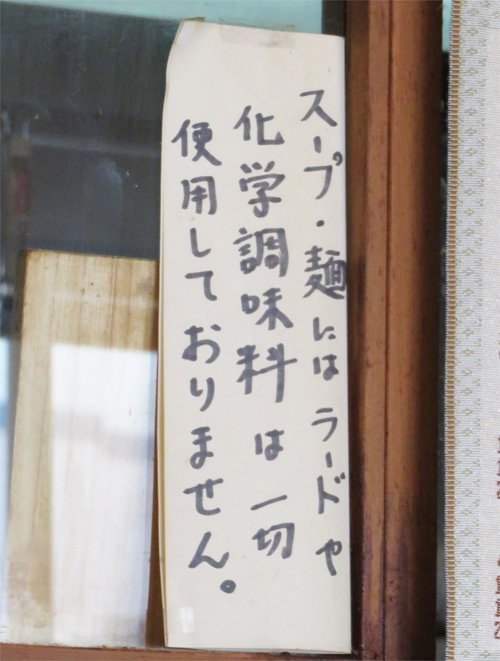 スープ・麺にはラードや
化学調味料は一切
使用しておりません。